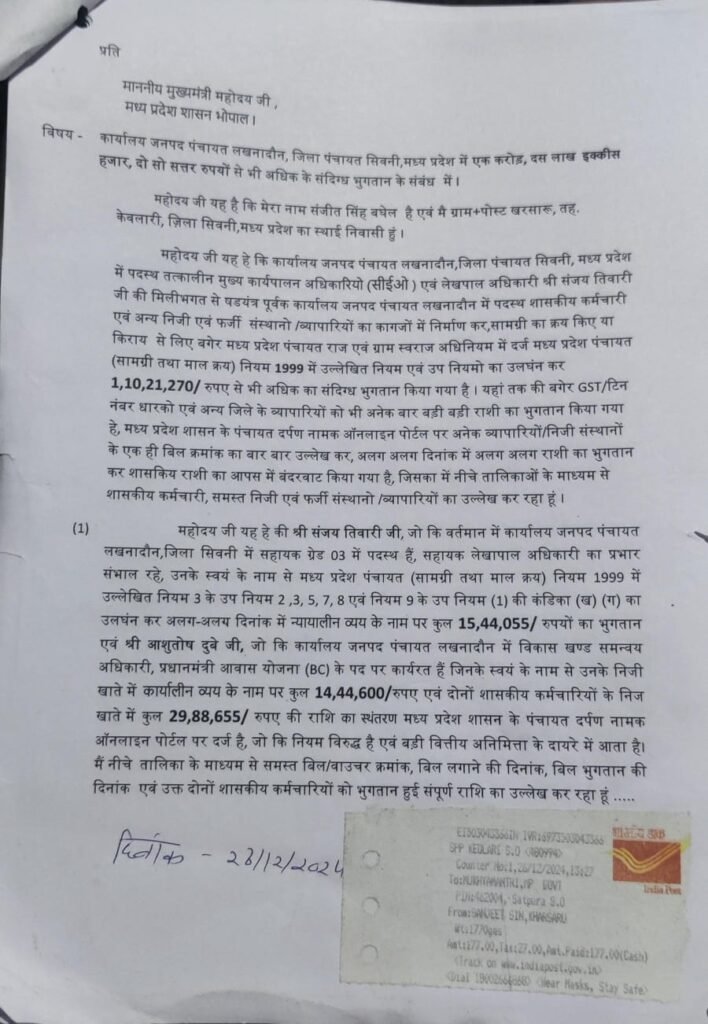 प्रति
माननीय मुख्यमंत्री महोदय जी ,
मध्य प्रदेश शासन भोपाल।
विषय - कार्यालय जनपद पंचायत लखनादौन, जिला पंचायत सिवनी,मध्य प्रदेश में एक करोड़, दस लाख इक्कीस
हजार, दो सो सत्तर रुपयों से भी अधिक के संदिग्ध भुगतान के संबंध में।
महोदय जी यह है कि मेरा नाम संजीत सिंह बघेल है एवं मै ग्राम+पोस्ट खरसारू, तह.
केवलारी, ज़िला सिवनी,मध्य प्रदेश का स्थाई निवासी हुं।
महोदय जी यह हे कि कार्यालय जनपद पंचायत लखनादौन,जिला पंचायत सिवनी, मध्य प्रदेश
में पदस्थ तत्कालीन मुख्य कार्यपालन अधिकारियो (सीईओ ) एवं लेखपाल अधिकारी श्री संजय तिवारी
जी की मिलीभगत से षडयंत्र पूर्वक कार्यालय जनपद पंचायत लखनादौन में पदस्थ शासकीय कर्मचारी
एवं अन्य निजी एवं फर्जी संस्थानो /व्यापारियों का कागजों में निर्माण कर,सामग्री का क्रय किए या
किराय से लिए बगेर मध्य प्रदेश पंचायत राज एवं ग्राम स्वराज अधिनियम में दर्ज मध्य प्रदेश पंचायत
(सामग्री तथा माल क्रय) नियम 1999 में उल्लेखित नियम एवं उप नियमो का उलघंन कर
1,10,21,270/ रुपए से भी अधिक का संदिग्ध भुगतान किया गया है। यहां तक की बगेर GST/टिन
नंबर धारको एवं अन्य जिले के व्यापारियों को भी अनेक बार बड़ी बड़ी राशी का भुगतान किया गया
हे, मध्य प्रदेश शासन के पंचायत दर्पण नामक ऑनलाइन पोर्टल पर अनेक व्यापारियों/निजी संस्थानों
के एक ही बिल क्रमांक का बार बार उल्लेख कर, अलग अलग दिनांक में अलग अलग राशी का भुगतान
कर शासकिय राशी का आपस में बंदरवाट किया गया है, जिसका में नीचे तालिकाओं के माध्यम से
शासकीय कर्मचारी, समस्त निजी एवं फर्जी संस्थानो /व्यापारियों का उल्लेख कर रहा हूं।
(1) महोदय जी यह हे की श्री संजय तिवारी जी, जो कि वर्तमान में कार्यालय जनपद पंचायत
लखनादौन,जिला सिवनी में सहायक ग्रेड 03 में पदस्थ हैं, सहायक लेखापाल अधिकारी का प्रभार
संभाल रहे, उनके स्वयं के नाम से मध्य प्रदेश पंचायत (सामग्री तथा माल क्रय) नियम 1999 में
उल्लेखित नियम 3 के उप नियम 2 ,3, 5, 7, 8 एवं नियम 9 के उप नियम (1) की कंडिका (ख) (ग) का
उलघंन कर अलग-अलय दिनांक में न्यायालीन व्यय के नाम पर कुल 15,44,055/ रुपयों का भुगतान
एवं श्री आशुतोष दुबे जी, जो कि कार्यालय जनपद पंचायत लखनादौन में विकास खण्ड समन्वय
अधिकारी, प्रधानमंत्री आवास योजना (BC) के पद पर कार्यरत हैं जिनके स्वयं के नाम से उनके निजी
खाते में कार्यालीन व्यय के नाम पर कुल 14,44,600/रुपए एवं दोनों शासकीय कर्मचारियों के निज
खाते में कुल 29,88,655/ रुपए की राशि का स्थंतरण मध्य प्रदेश शासन के पंचायत दर्पण नामक
ऑनलाइन पोर्टल पर दर्ज है, जो कि नियम विरुद्ध है एवं बड़ी वित्तीय अनिमित्ता के दायरे में आता है।
मैं नीचे तालिका के माध्यम से समस्त बिल/वाउचर क्रमांक, बिल लगाने की दिनांक, बिल भुगतान की
दिनांक एवं उक्त दोनों शासकीय कर्मचारियों को भुगतान हुई संपूर्ण राशि का उल्लेख कर रहा हूं .....
दिनांक - 26/12/2024
EI503043366IN IVR:6973503043366
SPP KEOLARI S.O <480994>
Counter No:1,26/12/2024,13:27
To:MUKHYAMANTRI,MP GOVT
PIN:462004, Satpura S.O
From:SANJEET SIN,KHARSARU
Wt:1770gms
Amt:177.00,Tax:27.00,Amt.Paid:177.00(Cash)
<Track on www.indiapost.gov.in>
<Dial 18002666868> <Wear Masks, Stay Safe>
भारतीय डाक
India Post